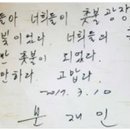 들아 너희들이 촛불 광장
빛이었다. 너희들의
촛불이 되었다.
안하다. 고맙다.
2017. 3. 10
문 재 인